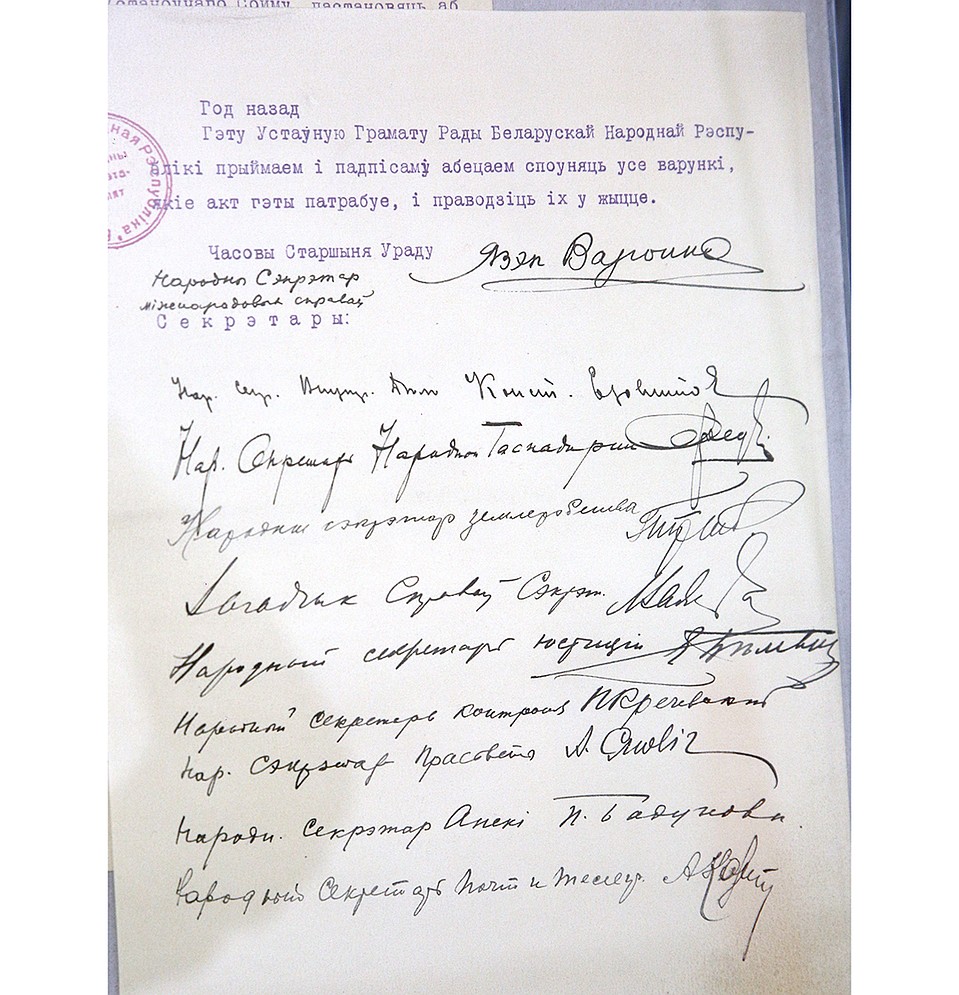 Год назад
Гэту Устаўную Грамату Рады Беларускай Народнай Рэспу-
блікі прыймаем і падпісамў абецаем споуняць усе варункі,
якіе акт гэты патрабуе, і праводзіць іх у жыцце.
Часовы Старшыня Ураду Язэп Варонко
Народны Сэкрэтар
міжнародовых справаў
Секрэтары:
Нар. Сек. Внутр. Дел Конст. Езовитов
Нар. Секрэтарь Народной Гаспадаркі
Народны сэкрэтар земляробства
Загадчык Справаў Сэкрэт.
Народный секретарь юстиции
Народный Секретарь контроля П Кречевский
Нар. Сэкрэтар Прасветы А. Смоліч
Народн. Секрэтар Апекі П. Бадунова
Народный Секретарь Почт и Телегр. А Карач